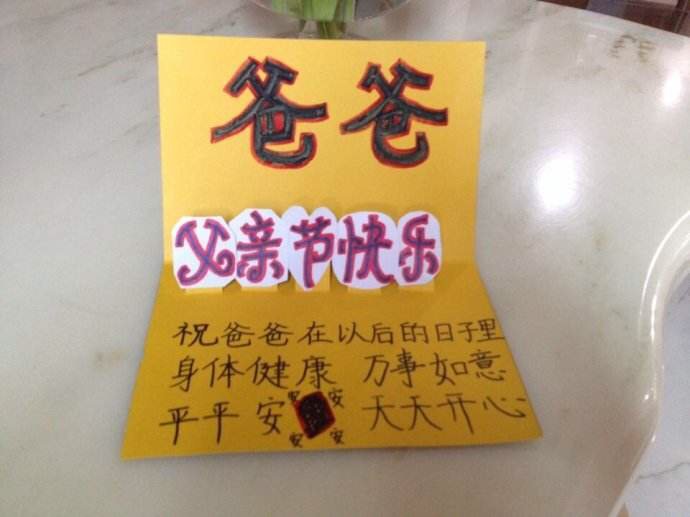 爸爸
父亲节快乐
祝爸爸在以后的日子里
身体健康 万事如意
安 安
平平安 天天开心
安 安